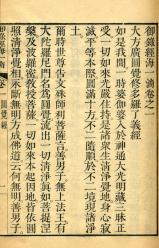 御錄經海一滴卷之一
大方廣圓覺修多羅了義經
如是我聞一時婆伽婆入於神通大光明藏三昧正
受一切如來光嚴住持是諸衆生清淨覺地身心寂
滅平等本際圓滿十方不二隨順於不二境現諸淨
爾時世尊告文殊師利菩薩言善男子無上法王有
大陀羅尼門名爲圓覺流出一切清淨眞如菩提涅
槃及波羅密教授菩薩一切如來本起因地皆依圓
照清淨覺相永斷無明方成佛道云何無明善男
卷一 圓覺經